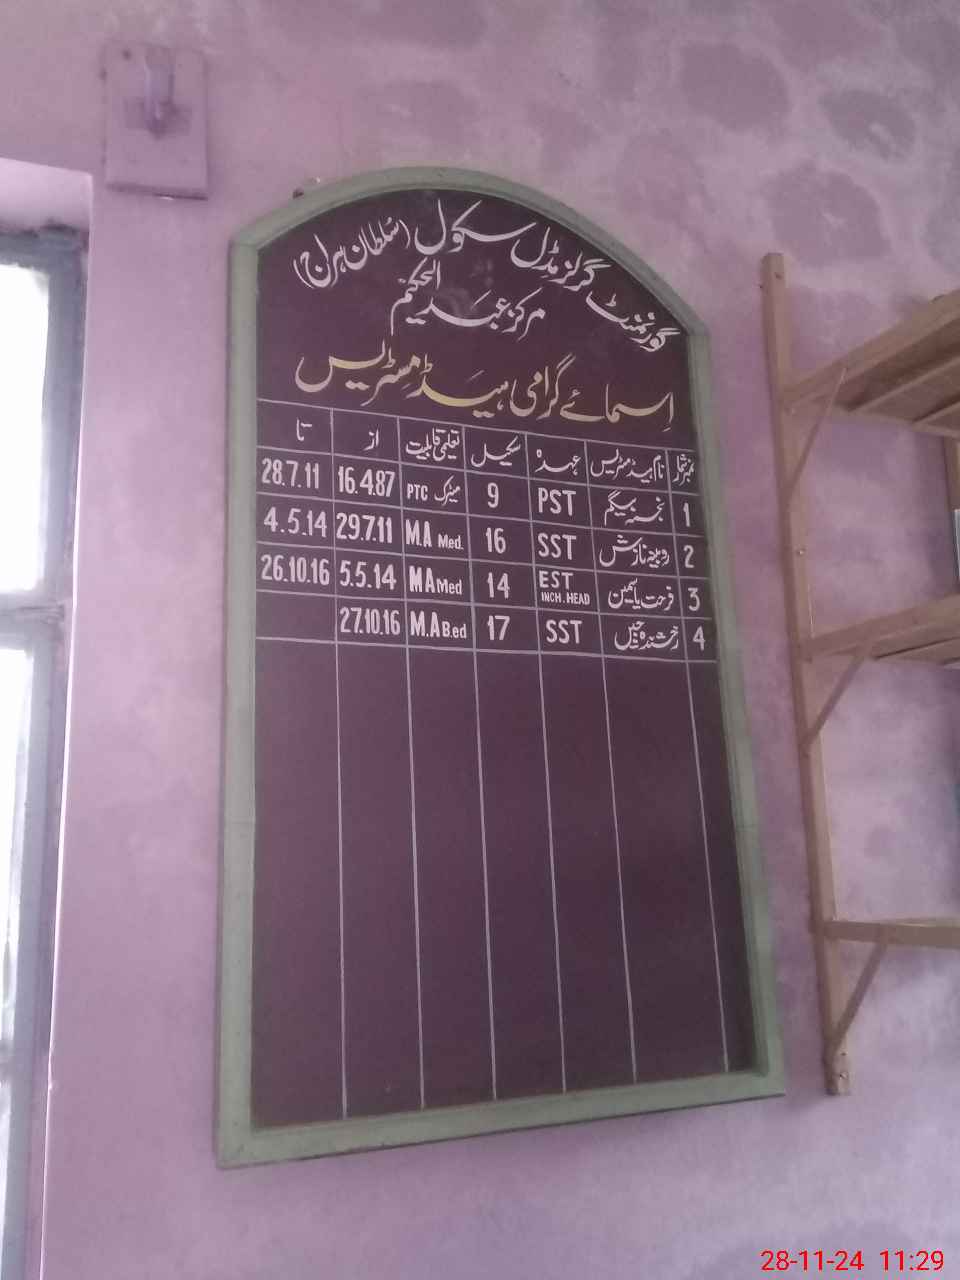 گورنمنٹ گرلز مڈل سکول (سُلطان ہراج)
مرکز عبد الحکیم
اِسمائے گرامی ہیڈ مسٹریس
نمبر شمار نام ہیڈ مسٹریس عہدہ سکیل تعلیمی قابلیت از تا
1 نجمہ بیگم PST 9 میٹرک PTC 16.4.87 28.7.11
2 روبینہ نازش SST 16 M.A Med. 29.7.11 4.5.14
3 فرحت یاسمین EST INCH. HEAD 14 M A Med 5.5.14 26.10.16
4 رخشندہ جبیں SST 17 M.A B.ed 27.10.16
28-11-24 11:29